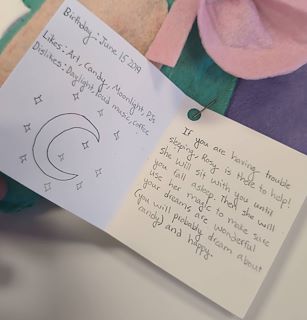 Birthday - June 15 2019
Likes: Art, Candy, Moonlight, DJs
Dislikes: Daylight, loud music, coffee
If you are having trouble
sleeping, Rosy is there to help!
She will sit with you until
you fall asleep. Then she will
use her magic to make sure
your dreams are wonderful
(you will probably dream about
candy) and happy.